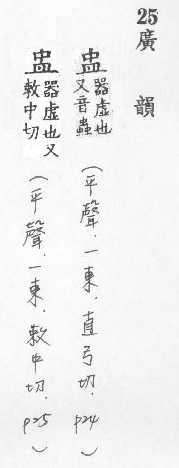 25廣韻
盅器虛也又音蟲(平聲.一東.直弓切.p24)
盅器虛也又敕中切(平聲.一東.敕中切.p25)